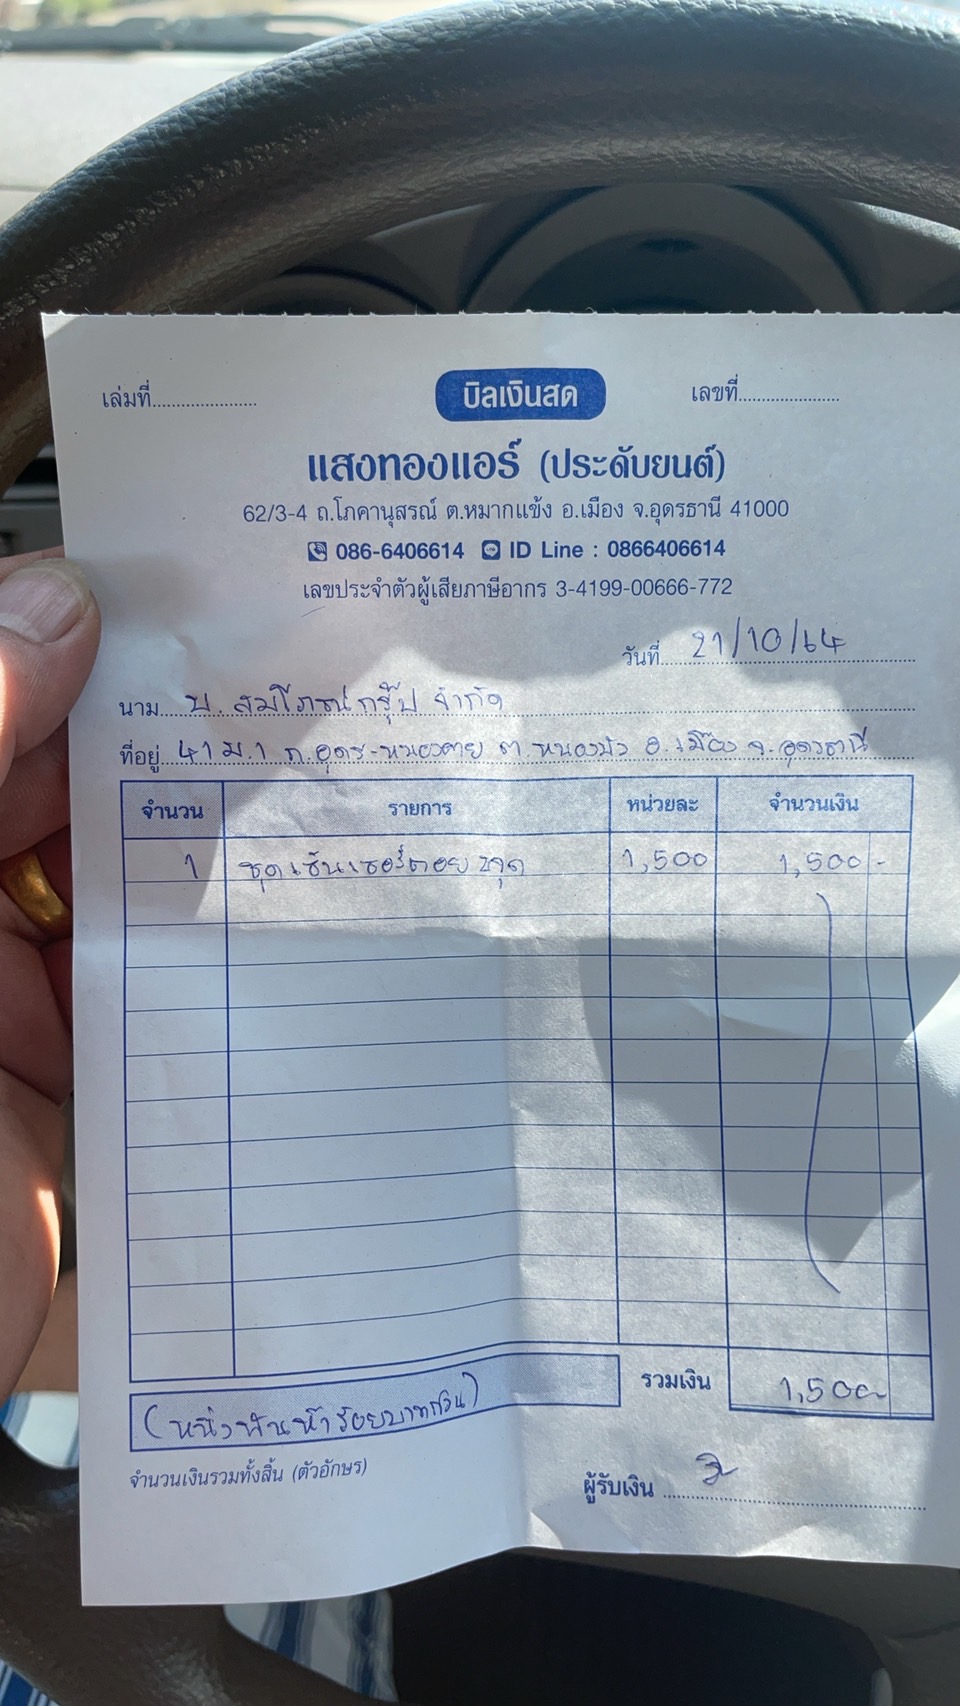 เล่มที่......................
บิลเงินสด
เลขที่......................
แสงทองแอร์ (ประดับยนต์)
62/3-4 ถ.โภคานุสรณ์ ต.หมากแข้ง อ.เมือง จ.อุดรธานี 41000
086-6406614 ID Line : 0866406614
เลขประจำตัวผู้เสียภาษีอากร 3-4199-00666-772
วันที่ 21/10/64
นาม บ. สมโภชน์กรุ๊ป จำกัด
ที่อยู่ 41 ม.1 ถ.อุดร-หนองคาย ต.หนองบัว อ.เมือง จ.อุดรธานี
จำนวน รายการ หน่วยละ จำนวนเงิน
1 ชุดเซ็นเซอร์ถอย 2จุด 1,500 1,500 -
รวมเงิน 1,500-
(หนึ่งพันห้าร้อยบาทถ้วน)
จำนวนเงินรวมทั้งสิ้น (ตัวอักษร)
ผู้รับเงิน